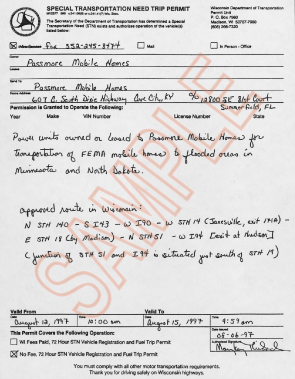 SPECIAL TRANSPORTATION NEED TRIP PERMIT
Wisconsin Department of Transportation
Permit Unit
P. O. Box 7980
Madison, WI 53707-7980
The Secretary of the Department of Transportation has determined a Special
Transportation Need (STN) exists and authorizes operation of the vehicle(s)
listed below:
Fax 352-245-8474
Mail
In Person - Office
Passmore Mobile Homes
Passmore Mobile Homes
S. Dixie Highway Cave City KY c/o 12800 SE Court Summerfield, FL
Permission is Granted to Operate the Following:
Year Make VIN Number License Number State
Power units owned or leased to Passmore Mobile Homes for
transportation of FEMA mobile homes to flooded areas in
Minnesota and North Dakota.
SAMPLE
approved route in Wisconsin:
N STH 140 - S I43 - W I90 - W STH 14 (Janesville, exit 171A) -
E STH 18 (by Madison) - N STH 51 - W I94 [exit at Hudson]
(junction of STH 51 and I94 is situated just south of STH 19)
Valid From
Valid To
August 12, 1997 10:00 am August 15, 1997 9:59 am
This Permit Covers the Following Operation:
08-06-97
WI Fees Paid, 72 Hour STN Vehicle Registration and Fuel Trip Permit
No Fee, 72 Hour STN Vehicle Registration and Fuel Trip Permit
You must comply with all other motor transportation requirements.
Thank you for driving safely on Wisconsin highways.